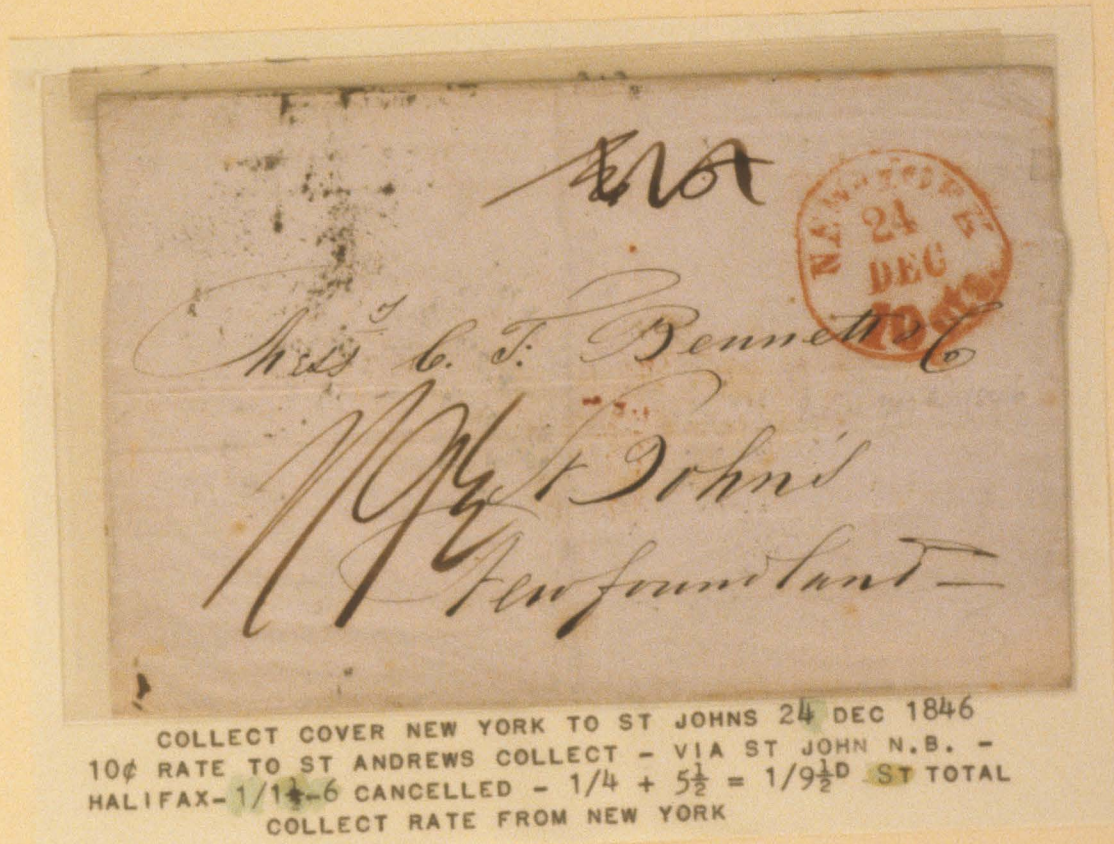 NEW-YORK
24
DEC
10 cts
Mess.rs C. F. Bennett & Co
1/9½
St Johns
Newfoundland
COLLECT COVER NEW YORK TO ST JOHNS 24 DEC 1846
10¢ RATE TO ST ANDREWS COLLECT - VIA ST JOHN N.B. -
HALIFAX- 1/1½-6 CANCELLED - 1/4 + 5½ = 1/9½D ST TOTAL
COLLECT RATE FROM NEW YORK